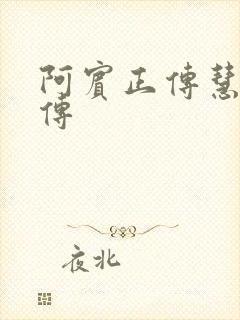 阿賓正傳慧
傳
夜北